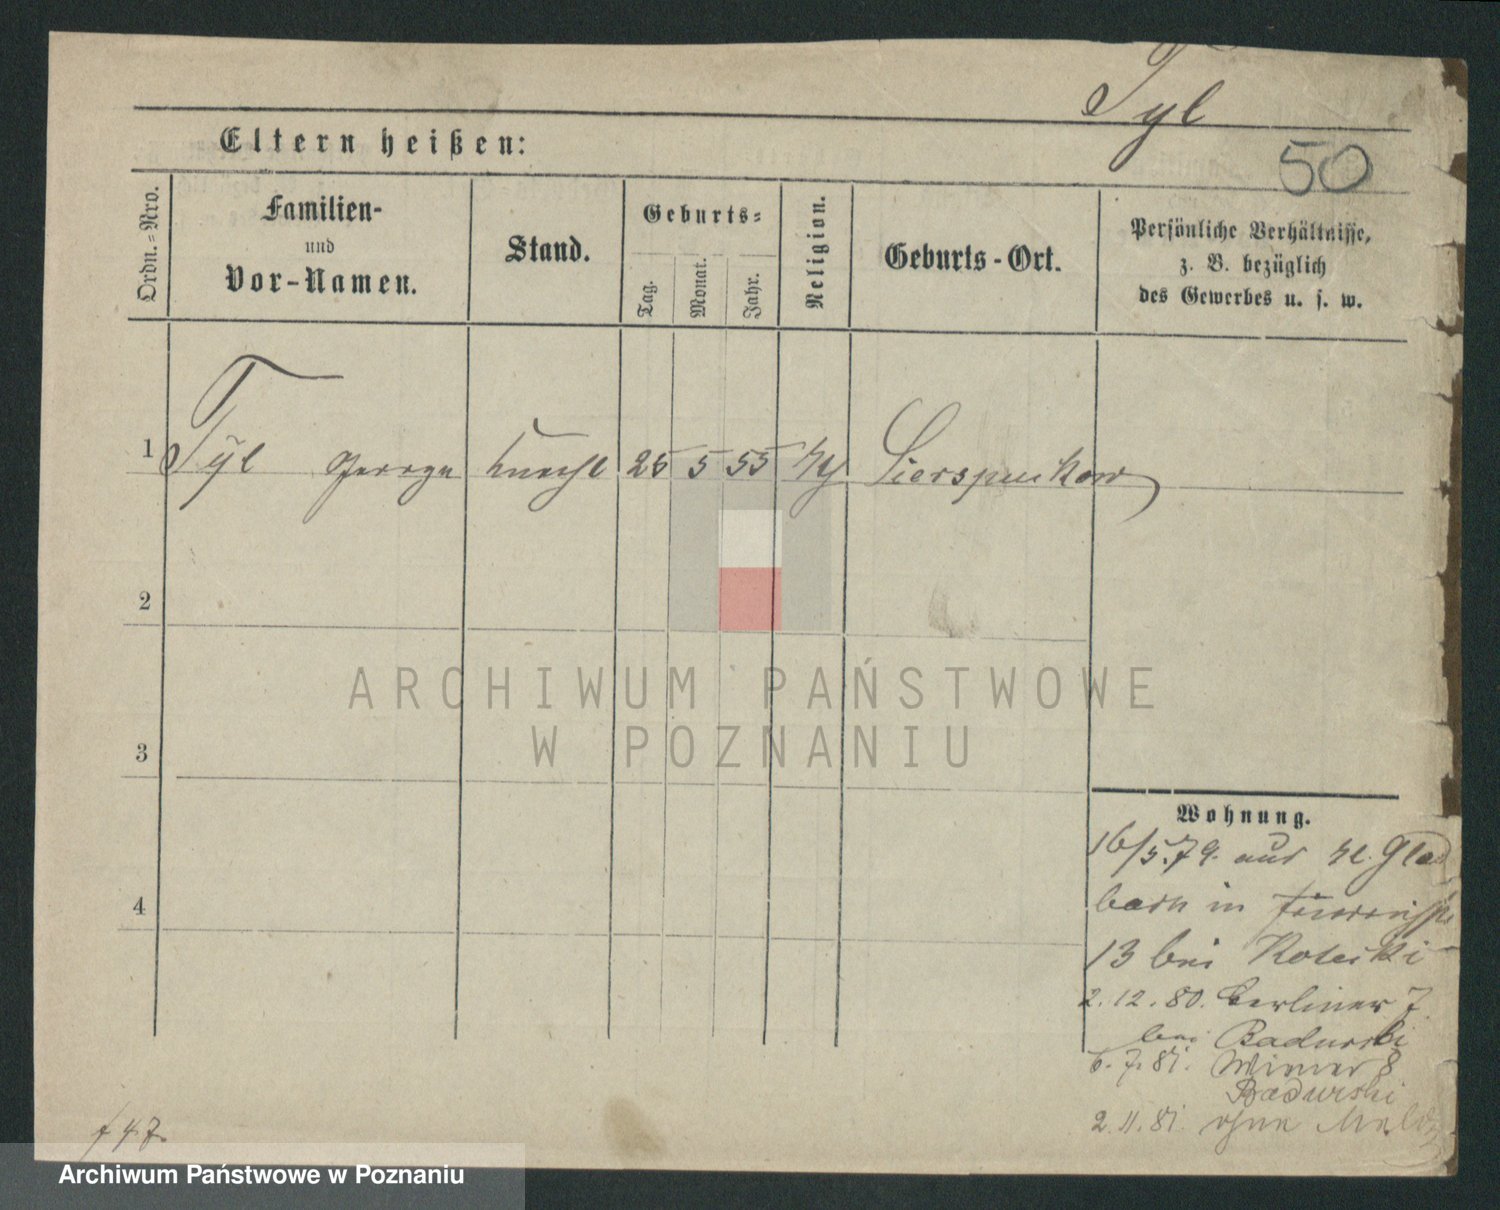 Tyl
50
Eltern heißen:
Ordn.=Nro.
Familien-
und
Vor-Namen.
Stand.
Geburts=
Tag.
Monat.
Jahr.
Religion.
Geburts-Ort.
Persönliche Verhältnisse,
z. B. bezüglich
des Gewerbes u. s. w.
1 Tyl George Knecht 25 5 55 Siersputkow
2
3
4
ARCHIWUM PAŃSTWOWE
W POZNANIU
Wohnung.
16/5.79. aus Kl. Glad
bach in
13 bei Koteski
2.12.80. Berliner 7.
bei Badurski
6.7.81. Wiener 8
Badurski
2.11.81. ohne Meld
f 47.
Archiwum Państwowe w Poznaniu